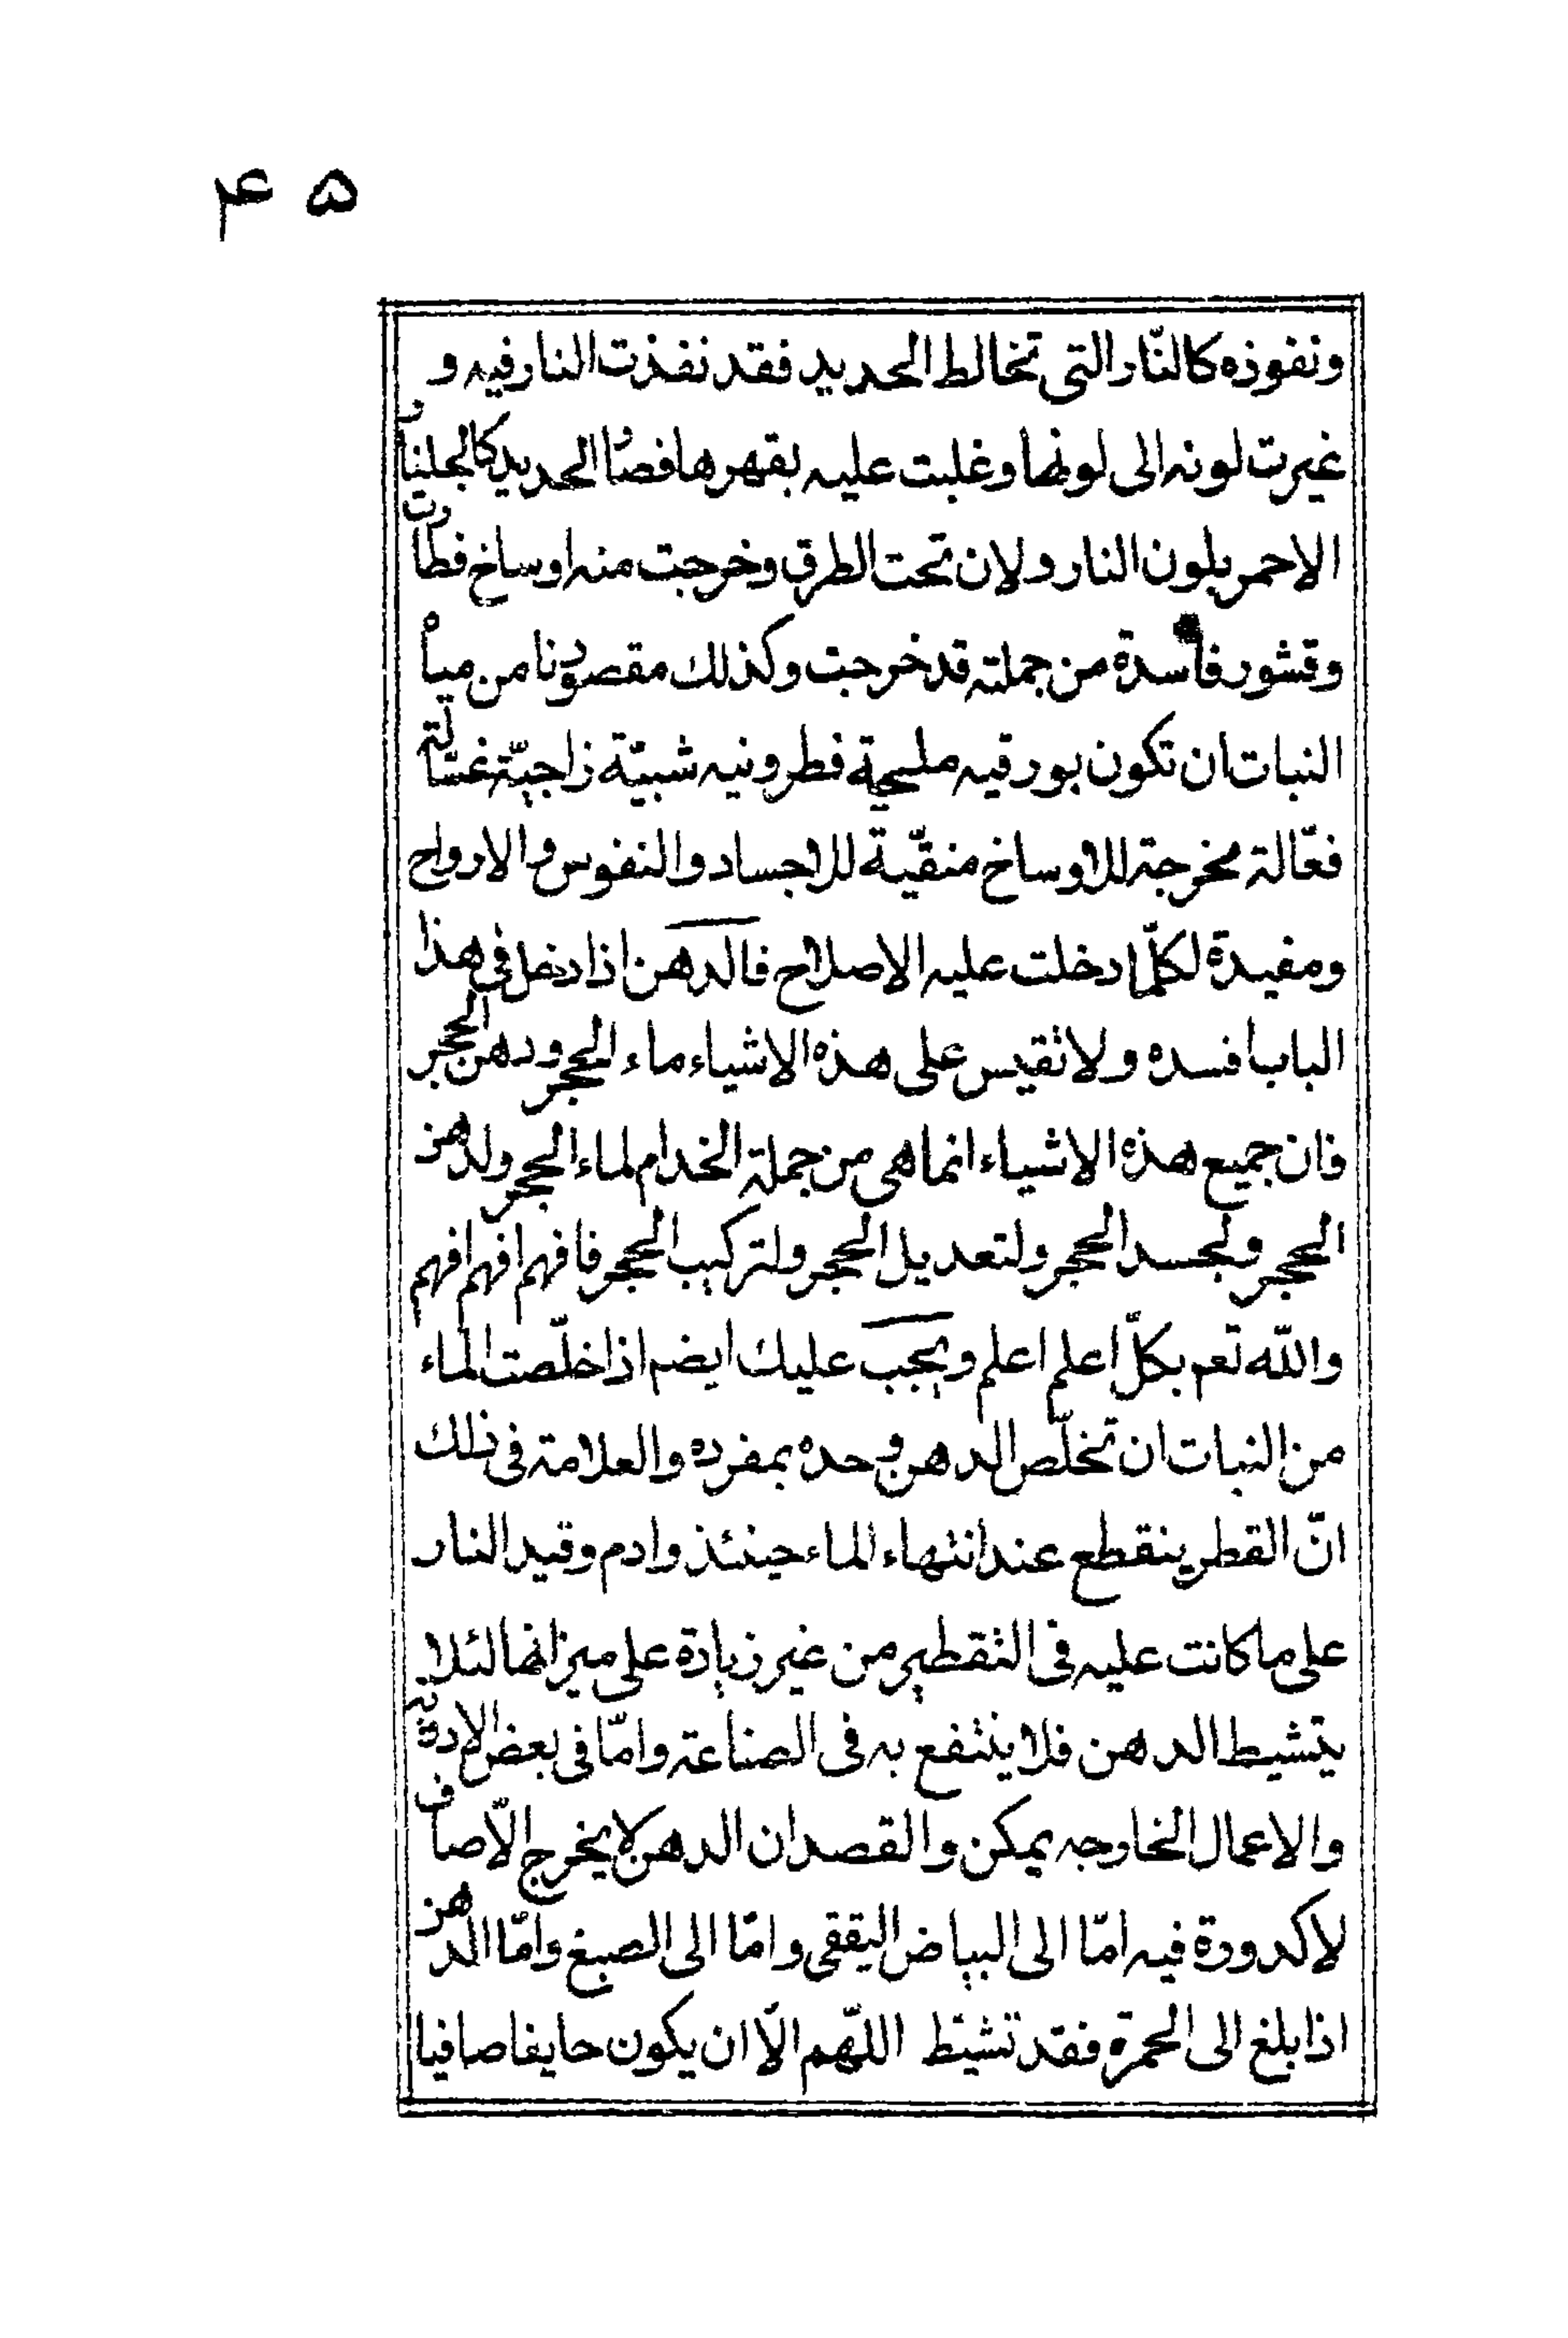 ۴۵
ونفوذه كالنّار التى تخالط الحديد فقد نفذت النار فيه و
غيرت لونه الى لونها وغلبت عليه بقهرها فصار الحديد كالجلنار
الاحمر بلون النار ولان تحت الطرق وخرجت منه اوساخ فطارت
وقشور فاسدة من جملته قد خرجت وكذلك مقصودنا من مياه
النبات ان تكون بورقيه ملحية فطرونيه شبيّة زاجيّة غسّالة
فعّالة مخرجة للاوساخ منقّية للاجساد والنفوس والارواح
ومفيدة لكلّما دخلت عليه الاصلاح فالدهن اذا دخل فى هذا
الباب افسده ولا نقيس على هذه الاشياء ماء الحجر ودهن الحجر
فان جميع هذه الاشياء انما هى من جملة الخدام لماء الحجر ولدهن
الحجر ولجسد الحجر ولتعديل الحجر ولتركيب الحجر فافهم افهم افهم
والله تعم بكلّ اعلم اعلم ويجب عليك ايضم اذا خلّصت الماء
من النبات ان تخلّص الدهن وحده بمفرده والعلامة فى ذلك
انّ القطر ينقطع عند انتهاء الماء حينئذ وادم وقيد النار
على ما كانت عليه فى التقطير من غير زيادة على ميزانها لئلا
يتشيط الدهن فلا ينتفع به فى الصناعة وامّا فى بعض الادوية
والاعمال الخاوجه يمكن والقصد ان الدهن لا يخرج الّا صاف
لا كدورة فيه امّا الى البياض اليققى وامّا الى الصبغ وامّا الدهن
اذا بلغ الى الحمرة فقد تشيّط اللّهم الّا ان يكون حايفا صافيا